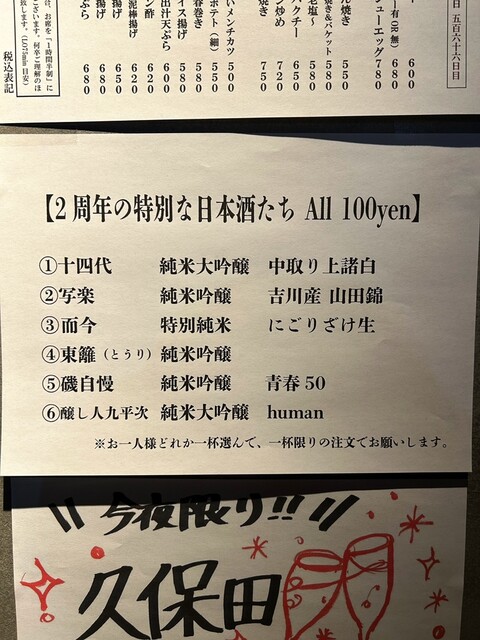 日 五百六十六日目
600
ー有 OR 無）680
ューエッグ780
ん焼き 550
焼き＆バケット 580
老塩〜 580
クチー 650
ン炒め 720
焼き 750
いメンチカツ 500
ポテト（細）550
イス揚げ 580
春巻き 580
出汁天ぷら 600
ン酢 620
泥棒揚げ 620
揚げ 650
揚げ 680
ぷら 680
け、お席を「1時間半制」に
ございます。何卒ご理解のほ
致します。（L.O75min目安）
税込表記
【2周年の特別な日本酒たち All 100yen】
①十四代 純米大吟醸 中取り上諸白
②写楽 純米吟醸 吉川産 山田錦
③而今 特別純米 にごりざけ生
④東籬（とうり）純米吟醸
⑤磯自慢 純米吟醸 青春50
⑥醸し人九平次 純米大吟醸 human
※お一人様どれか一杯選んで、一杯限りの注文でお願いします。
今夜限り!!
久保田